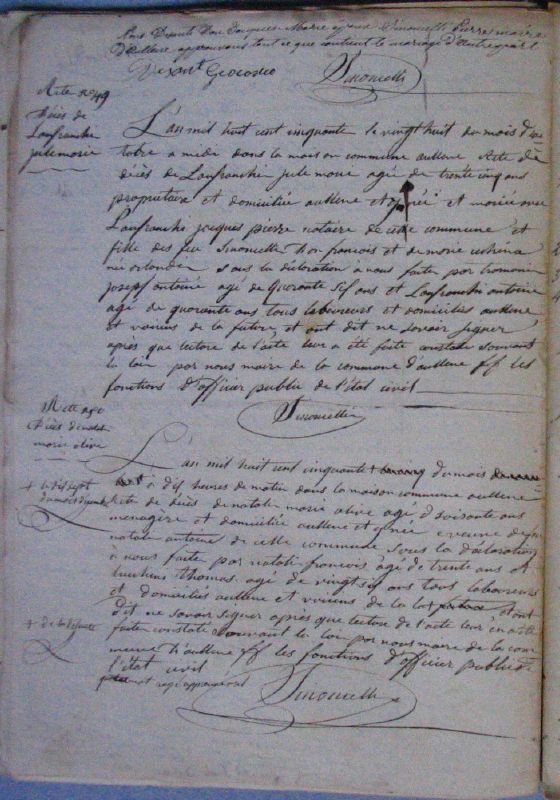 Nous Deputé Don Jacques Marie Simonetti Pierre maire
D'Aullene approuvons tout ce que contient le mariage d'autre part
Simonetti
Acte No 49
Décès de
Lanfranchi
jule marie
L'an mil huit cent cinquante le vingt huit du mois d'oc
tobre a midi dans la maison commune aullene Acte de
décès de Lanfranchi jule marie agé de trente cinq ans
propriétaire et domiciliée aullene et née et mariée au
Lanfranchi jacques pierre notaire de cette commune et
fille des feu Simonetti Don francois et de marie
née orlanda sous la déclaration a nous faite par tramoni
josepf antoine agé de quarante sif ans et Lanfranchi antoine
agé de quarante ans tous laboureurs et domiciliés aullene
et voisins de la future et ont dit ne savoir signer
après que lectore de l'acte leur a été faite constaté souvant
la loi par nous maire de la commune d'aullene ff les
fonctions d'officier public de l'état civil
Simonetti
Acte
Décès de natali
marie olive
+ le dis sept
du mois d
L'an mil huit cent cinquante du mois
à dis heures de matin dans la maison commune aullene
acte de décès de natali marie olive agé d soisante ans
menagère et domiciliée aullene et née e veuve de feu
natali antoine de cette commune sous la déclaration
à nous faite par natali francois agé de trente ans et
thomas agé de vingt sif ans tous laboureurs
et domiciliés aullene et voisins de la et ont
dit ne savoir signer après que lectore de l'acte leur en a été
+ de la défunte
faite constaté souvant la loi par nous maire de la com
mune d'aullene ff les fonctions d'officier public de
l'état civil
Simonetti